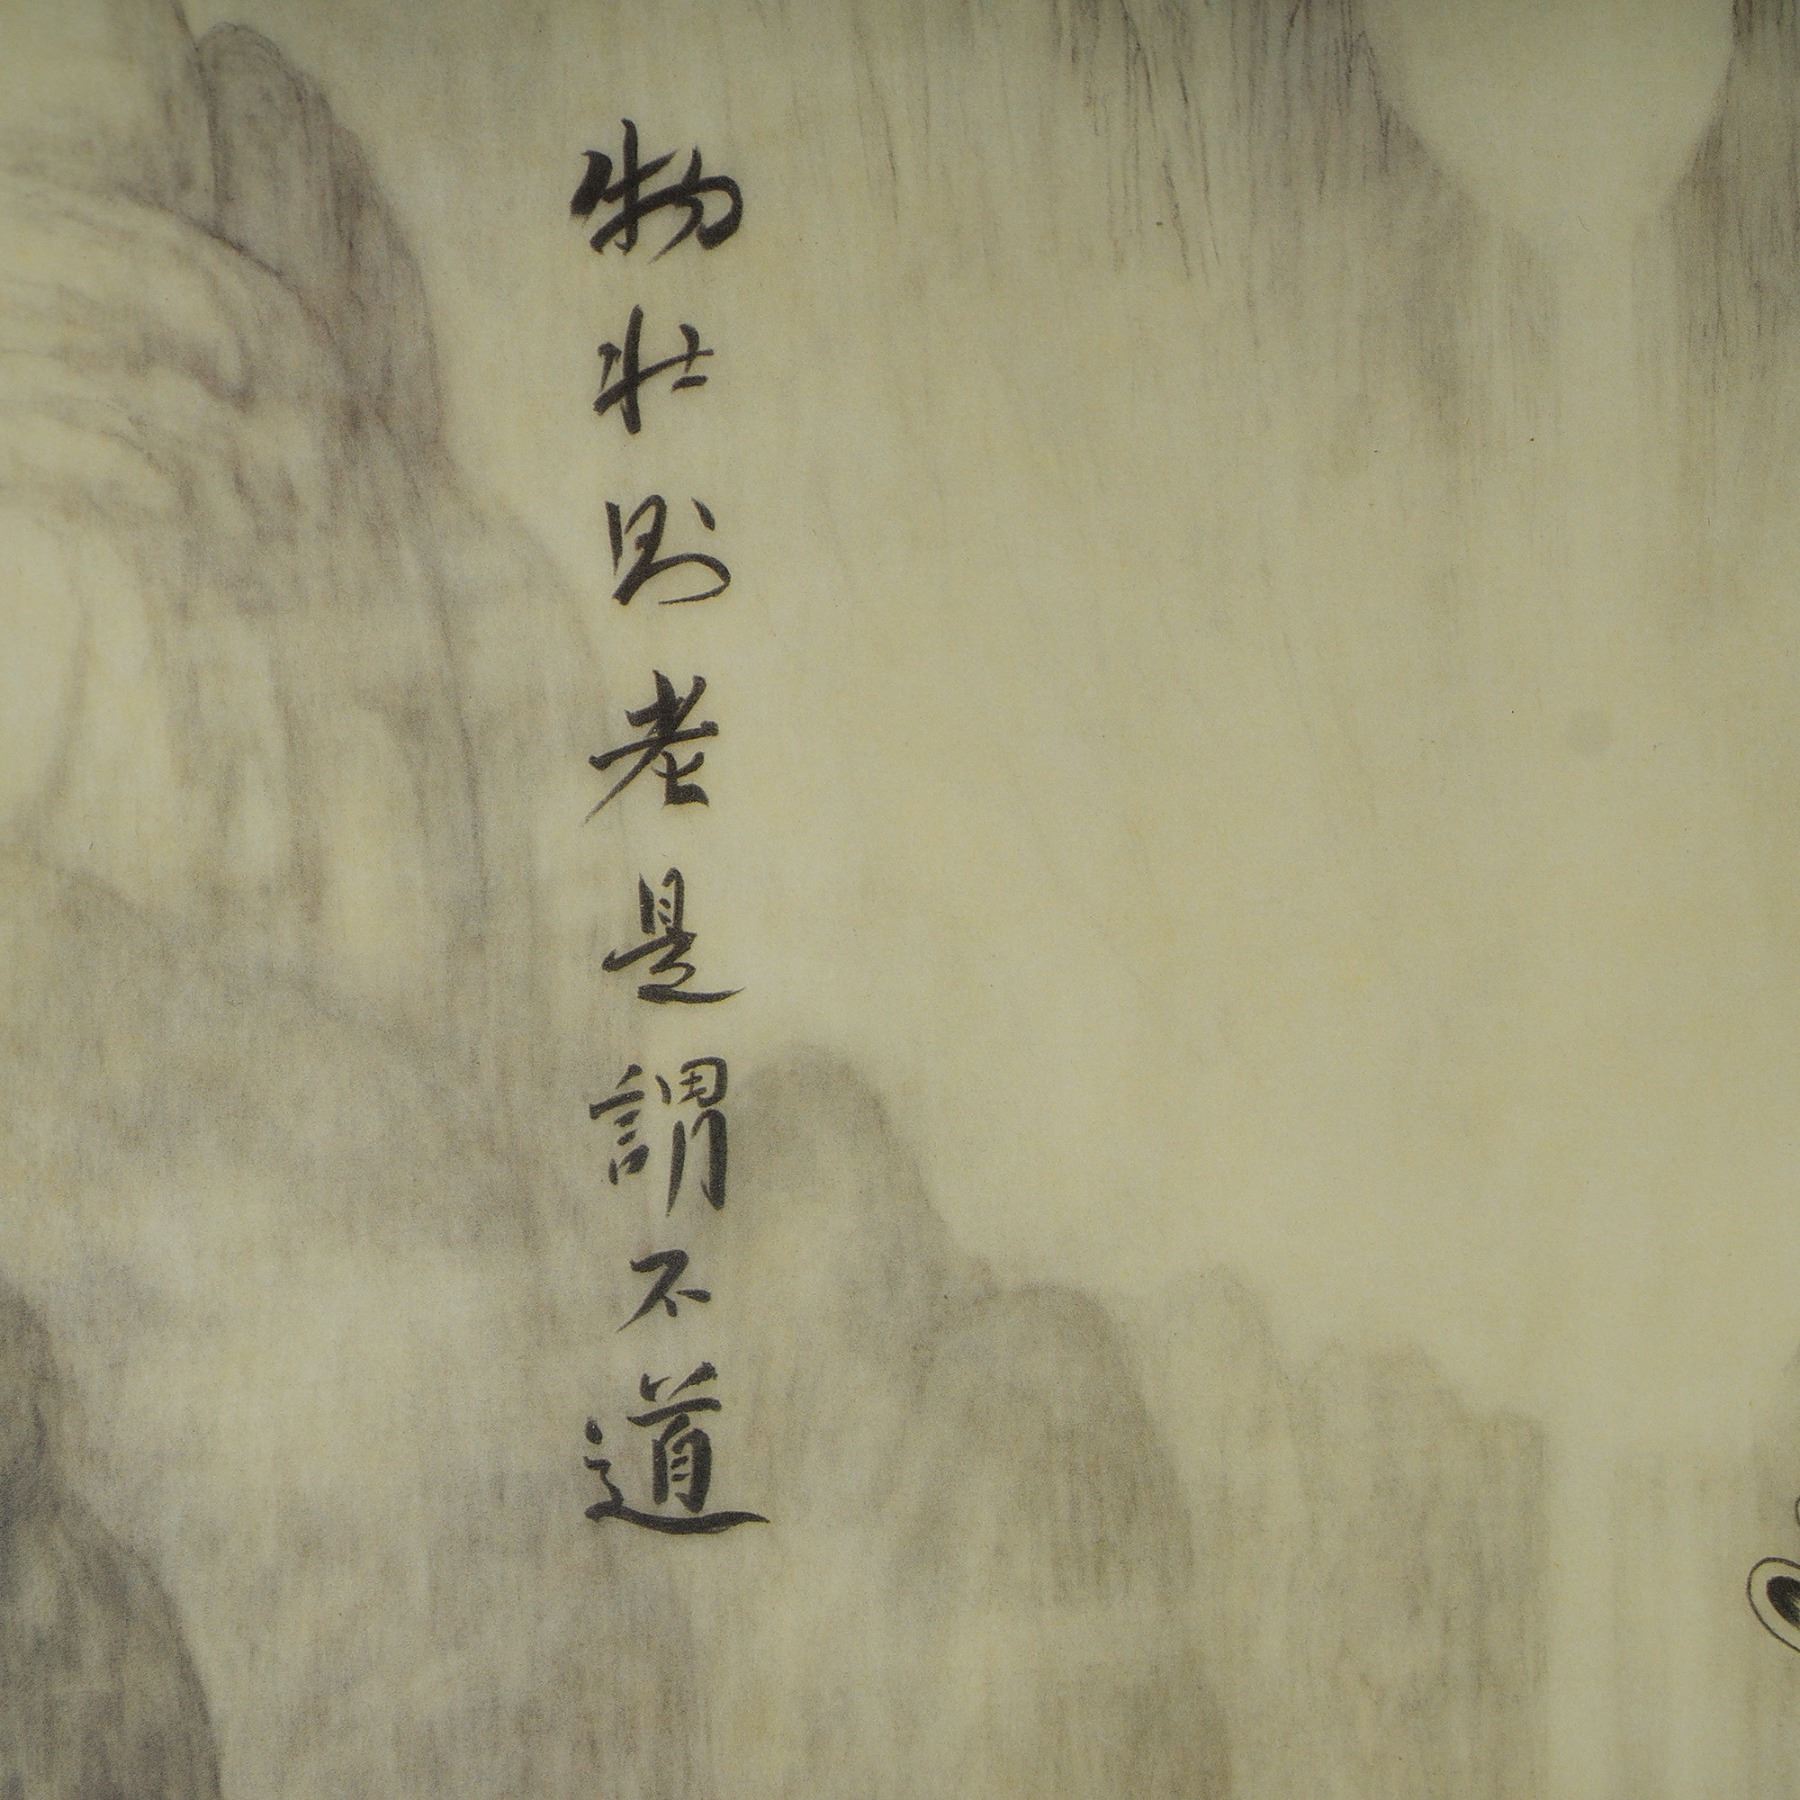 物壯則老是謂不道